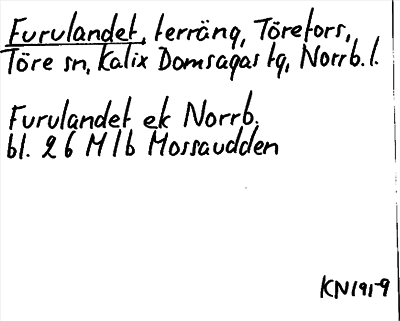 Furulandet, terräng, Törefors,
Töre sn, Kalix Domsagas tg, Norrb. l.
Furulandet ek Norrb.
bl. 26 M 1b Mossaudden
KN 1919